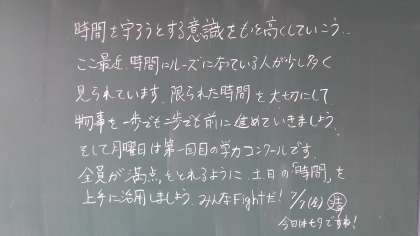 時間を守ろうとする意識をもっと高くしていこう..
ここ最近、時間にルーズになっている人が少し多く
見られています。限られた時間を大切にして
物事を一歩でも二歩でも前に進めていきましょう。
そして月曜日は第一回目の学力コンクールです。
全員が満点をとれるように、土日の「時間」を
上手に活用しましょう。みんなFightだ! 7/7(金)
今日は七夕ですね!